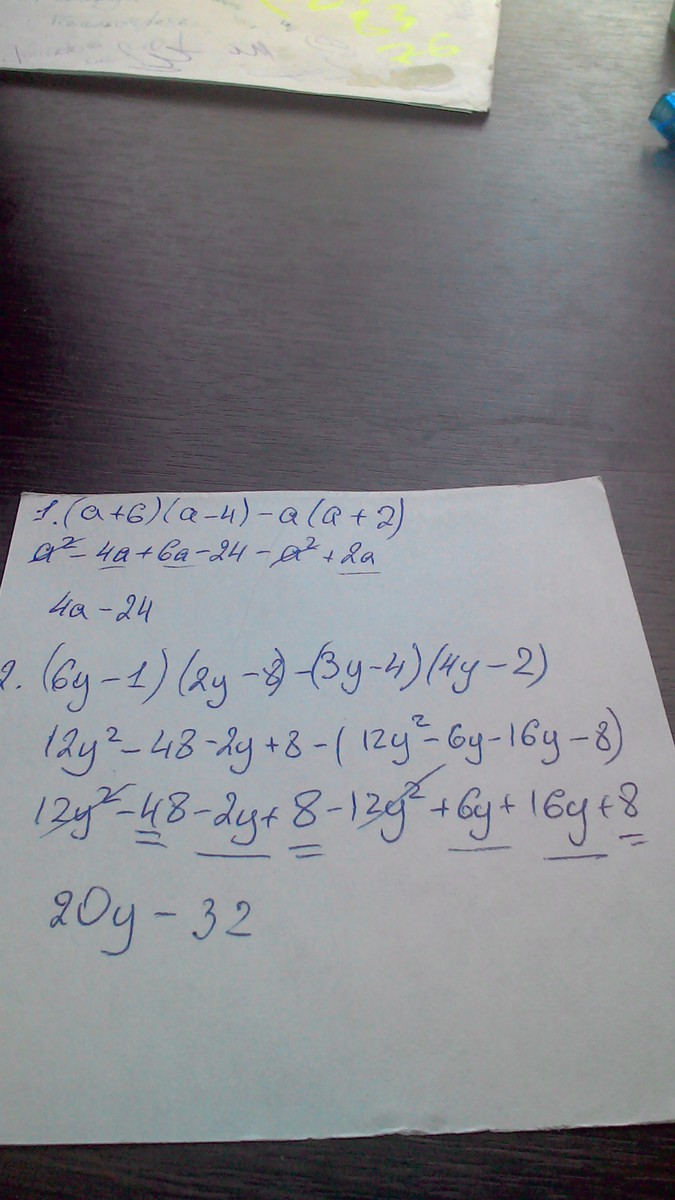 1. (a+6)(a-4)-a(a+2)
a²-4a+6a-24-a²+2a
4a-24
2. (6y-1)(2y-8)-(3y-4)(4y-2)
12y²-48-2y+8-(12y²-6y-16y-8)
12y²-48-2y+8-12y²+6y+16y+8
20y-32